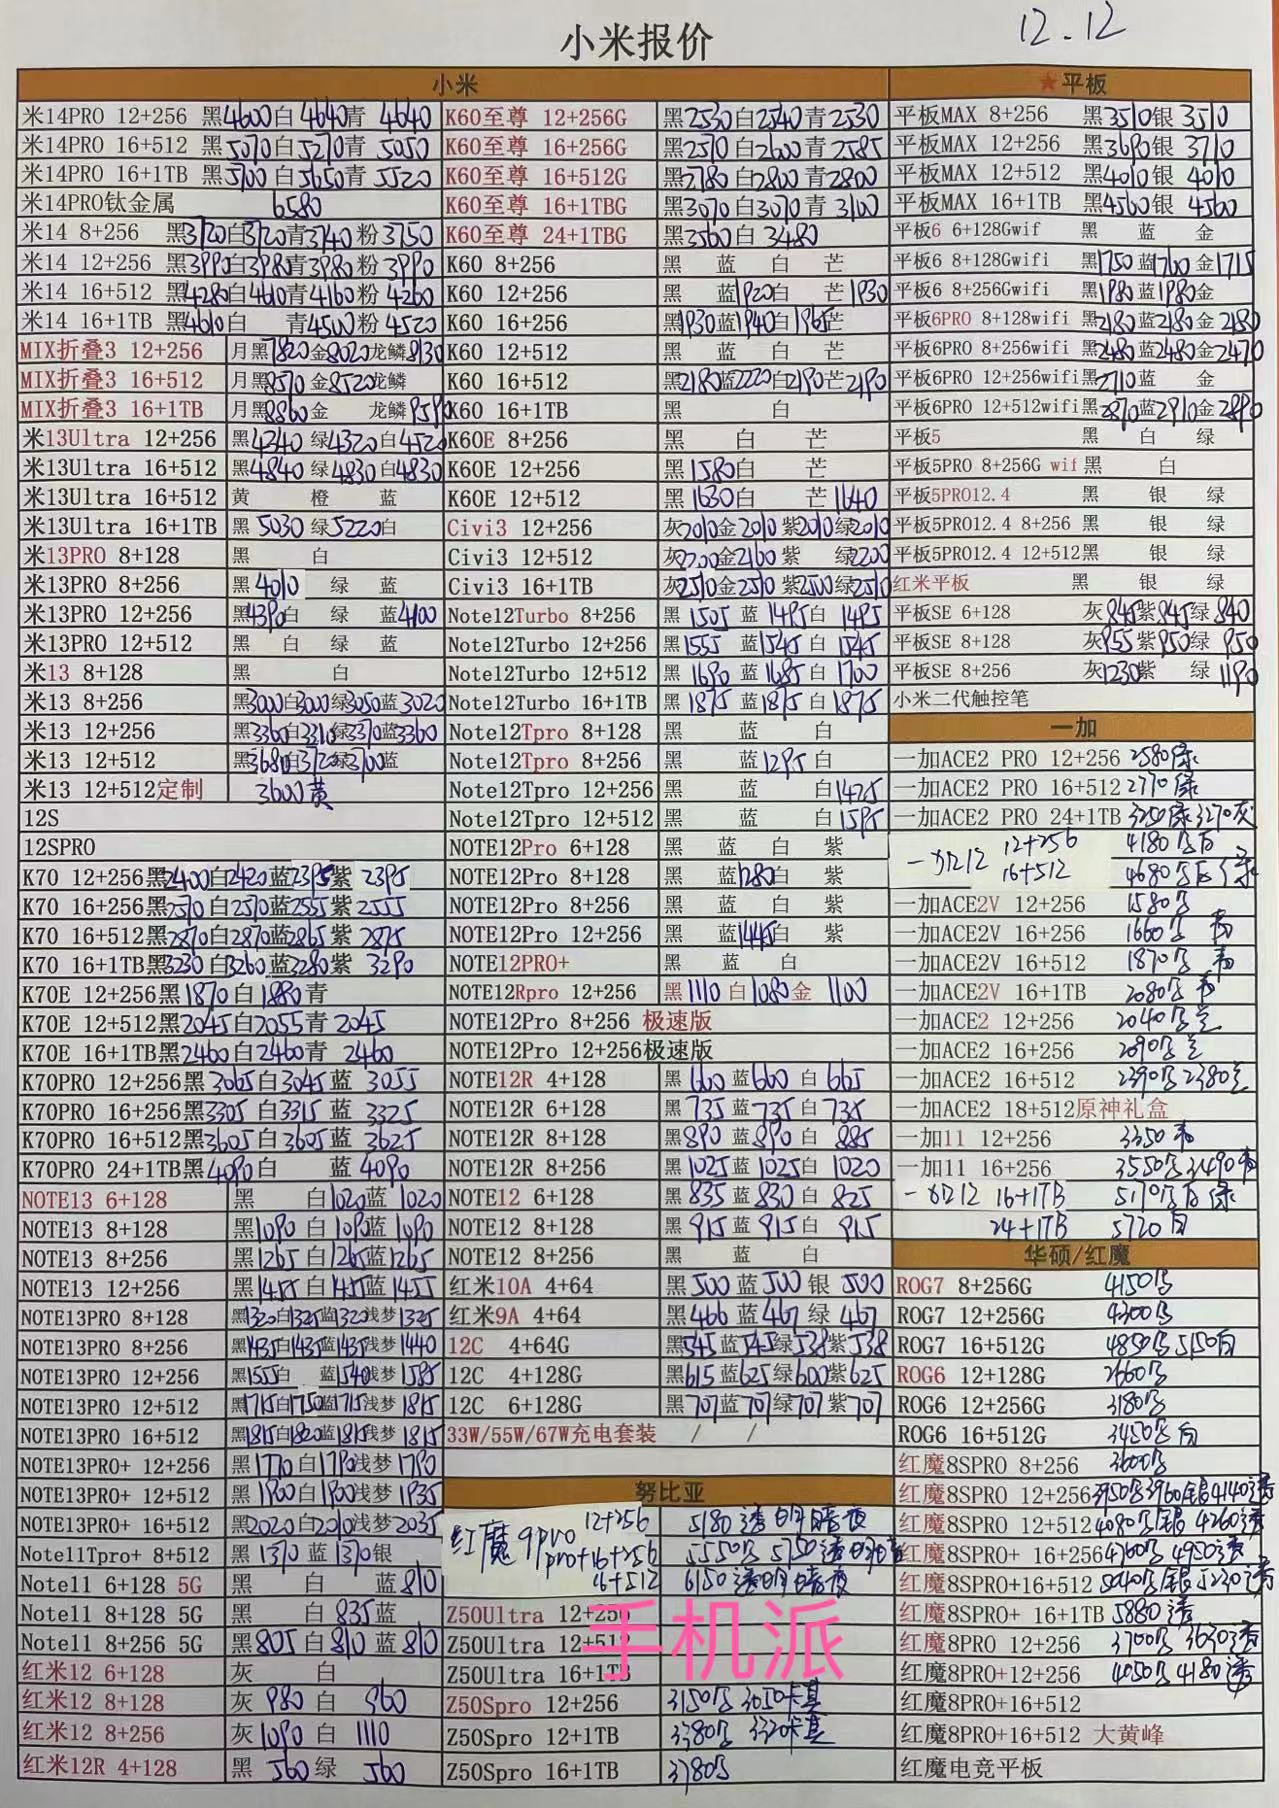 小米报价
12.12
小米
米14PRO 12+256 黑4600白4640青4640
米14PRO 16+512 黑5070白5270青5050
米14PRO 16+1TB 黑5700白5650青5520
米14PRO钛金属 6580
米14 8+256 黑3720白3720青3740粉3750
米14 12+256 黑3990白3980青3980粉3990
米14 16+512 黑4280白4610青4160粉4260
米14 16+1TB 黑4610白 青4500粉4520
MIX折叠3 12+256 月黑7820金8020龙鳞8130
MIX折叠3 16+512 月黑8570金8520龙鳞
MIX折叠3 16+1TB 月黑8860金 龙鳞
米13Ultra 12+256 黑4340绿4320白4520
米13Ultra 16+512 黑4840绿4830白4830
米13Ultra 16+512 黄 橙 蓝
米13Ultra 16+1TB 黑5030绿5220白
米13PRO 8+128 黑 白
米13PRO 8+256 黑4010 绿 蓝
米13PRO 12+256 黑4390白 绿 蓝4100
米13PRO 12+512 黑 白 绿 蓝
米13 8+128 黑 白
米13 8+256 黑3000白3000绿3050蓝3020
米13 12+256 黑3360白3310绿3370蓝3360
米13 12+512 黑3680白3720绿3700蓝
米13 12+512定制 3600黄
12S
12SPRO
K70 12+256黑2400白2420蓝2395紫2395
K70 16+256黑2570白2570蓝2555紫2555
K70 16+512黑2870白2870蓝2865紫2875
K70 16+1TB黑3230白3260蓝3280紫3290
K70E 12+256黑1870白1880青
K70E 12+512黑2045白2055青2045
K70E 16+1TB黑2460白2460青2460
K70PRO 12+256黑3065白3045蓝3055
K70PRO 16+256黑3305白3315蓝3325
K70PRO 16+512黑3605白3605蓝3625
K70PRO 24+1TB黑4090白 蓝4090
NOTE13 6+128 黑 白1020蓝1020
NOTE13 8+128 黑1090白1090蓝1090
NOTE13 8+256 黑1265白1265蓝1265
NOTE13 12+256 黑1455白1455蓝1455
NOTE13PRO 8+128 黑1320白1325蓝1320浅梦1325
NOTE13PRO 8+256 黑1435白1435蓝1435浅梦1440
NOTE13PRO 12+256 黑1555白 蓝1540浅梦1585
NOTE13PRO 12+512 黑1715白1750蓝1715浅梦1815
NOTE13PRO 16+512 黑1815白1820蓝1815浅梦1815
NOTE13PRO+ 12+256 黑1770白1790浅梦1790
NOTE13PRO+ 12+512 黑1900白1900浅梦1935
NOTE13PRO+ 16+512 黑2020白2010浅梦2035
Note11Tpro+ 8+512 黑1370蓝1370银
Note11 6+128 5G 黑 白 蓝810
Note11 8+128 5G 黑 白835蓝
Note11 8+256 5G 黑805白810蓝810
红米12 6+128 灰 白
红米12 8+128 灰980白960
红米12 8+256 灰1090白1110
红米12R 4+128 黑560绿560
K60至尊 12+256G 黑2530白2540青2530
K60至尊 16+256G 黑2510白2600青2585
K60至尊 16+512G 黑2780白2800青2800
K60至尊 16+1TBG 黑3070白3070青3100
K60至尊 24+1TBG 黑3560白3480
K60 8+256 黑 蓝 白 芒
K60 12+256 黑 蓝1920白 芒1930
K60 16+256 黑1930蓝1940白1965芒
K60 12+512 黑 蓝 白 芒
K60 16+512 黑2180蓝2220白2190芒2190
K60 16+1TB 黑 白
K60E 8+256 黑 白 芒
K60E 12+256 黑1580白 芒
K60E 12+512 黑1630白 芒1640
Civi3 12+256 灰2010金2010紫2010绿2010
Civi3 12+512 灰2200金2160紫 绿2200
Civi3 16+1TB 灰2510金2510紫2500绿2510
Note12Turbo 8+256 黑1505蓝1495白1495
Note12Turbo 12+256 黑1555蓝1545白1545
Note12Turbo 12+512 黑1690蓝1685白1700
Note12Turbo 16+1TB 黑1875蓝1875白1875
Note12Tpro 8+128 黑 蓝 白
Note12Tpro 8+256 黑 蓝1295白
Note12Tpro 12+256 黑 蓝 白1475
Note12Tpro 12+512 黑 蓝 白1595
NOTE12Pro 6+128 黑 蓝 白 紫
NOTE12Pro 8+128 黑 蓝1280白 紫
NOTE12Pro 8+256 黑 蓝 白 紫
NOTE12Pro 12+256 黑 蓝1445白 紫
NOTE12PRO+ 黑 蓝 白
NOTE12Rpro 12+256 黑1110白1080金1100
NOTE12Pro 8+256 极速版
NOTE12Pro 12+256极速版
NOTE12R 4+128 黑660蓝660白665
NOTE12R 6+128 黑735蓝735白735
NOTE12R 8+128 黑890蓝890白885
NOTE12R 8+256 黑1025蓝1025白1020
NOTE12 6+128 黑835蓝830白825
NOTE12 8+128 黑915蓝915白915
NOTE12 8+256 黑 蓝 白
红米10A 4+64 黑500蓝500银500
红米9A 4+64 黑466蓝467绿467
12C 4+64G 黑545蓝545绿538紫538
12C 4+128G 黑615蓝625绿600紫625
12C 6+128G 黑707蓝707绿707紫707
33W/55W/67W充电套装 / /
努比亚
红魔9pro 12+256 5180透明暗夜
pro+16+256 5550黑 5750透明
16+512 6150透明暗夜
Z50Ultra 12+256
Z50Ultra 12+512
Z50Ultra 16+1TB
手机派
Z50Spro 12+256 3150黑 3050卡其
Z50Spro 12+1TB 3380黑 3320卡其
Z50Spro 16+1TB 3780黑
★平板
平板MAX 8+256 黑3510银3510
平板MAX 12+256 黑3690银3710
平板MAX 12+512 黑4010银4010
平板MAX 16+1TB 黑4560银4560
平板6 6+128Gwif 黑 蓝 金
平板6 8+128Gwifi 黑1750蓝1760金1715
平板6 8+256Gwifi 黑1980蓝1980金
平板6PRO 8+128wifi 黑2180蓝2180金2180
平板6PRO 8+256wifi 黑2480蓝2480金2470
平板6PRO 12+256wifi黑2710蓝 金
平板6PRO 12+512wifi黑2870蓝2910金2890
平板5 黑 白 绿
平板5PRO 8+256G wif 黑 白
平板5PRO12.4 黑 银 绿
平板5PRO12.4 8+256 黑 银 绿
平板5PRO12.4 12+512黑 银 绿
红米平板 黑 银 绿
平板SE 6+128 灰845紫845绿840
平板SE 8+128 灰955紫950绿950
平板SE 8+256 灰1230紫 绿1190
小米二代触控笔
一加
一加ACE2 PRO 12+256 2580绿
一加ACE2 PRO 16+512 2770绿
一加ACE2 PRO 24+1TB 3250绿3270灰
一加12 12+256 4180黑白
16+512 4680黑白绿
一加ACE2V 12+256 1580黑
一加ACE2V 16+256 1660黑 青
一加ACE2V 16+512 1870黑 青
一加ACE2V 16+1TB 2080黑 青
一加ACE2 12+256 2040黑兰
一加ACE2 16+256 2090黑兰
一加ACE2 16+512 2390黑2380兰
一加ACE2 18+512原神礼盒
一加11 12+256 3350青
一加11 16+256 3550黑3490青
一加12 16+1TB 5170黑白绿
24+1TB 5720白
华硕/红魔
ROG7 8+256G 4150黑
ROG7 12+256G 4300黑
ROG7 16+512G 4850黑5150白
ROG6 12+128G 2660黑
ROG6 12+256G 3180黑
ROG6 16+512G 3450白
红魔8SPRO 8+256 3600黑
红魔8SPRO 12+256 3950黑3960银4140透
红魔8SPRO 12+512 4080黑银 4260透
红魔8SPRO+ 16+256 4760黑 4950透
红魔8SPRO+16+512 5040黑银5230透
红魔8SPRO+ 16+1TB 5880透
红魔8PRO 12+256 3700黑 3630透
红魔8PRO+12+256 4050黑 4180透
红魔8PRO+16+512
红魔8PRO+16+512 大黄峰
红魔电竞平板